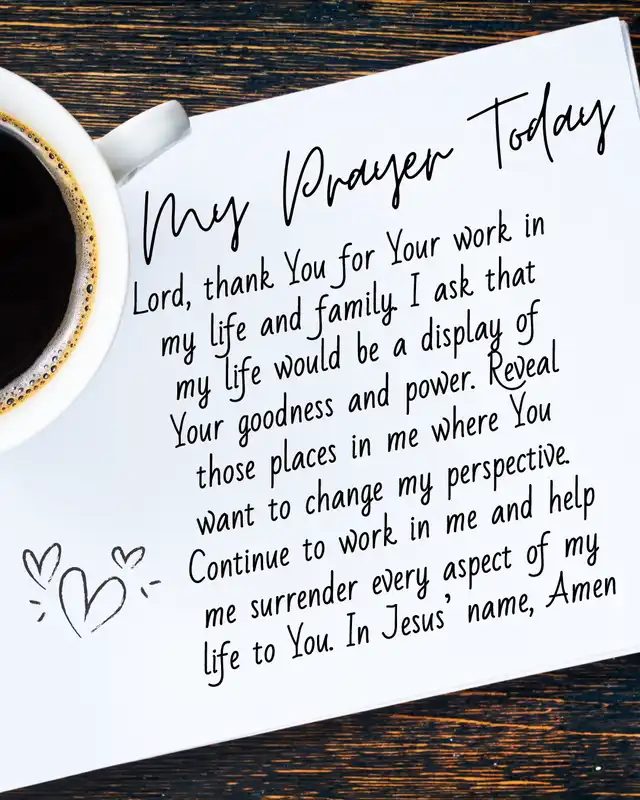 My Prayer Today
Lord, thank You for Your work in
my life and family. I ask that
my life would be a display of
Your goodness and power. Reveal
those places in me where You
want to change my perspective.
Continue to work in me and help
me surrender every aspect of my
life to You. In Jesus' name, Amen